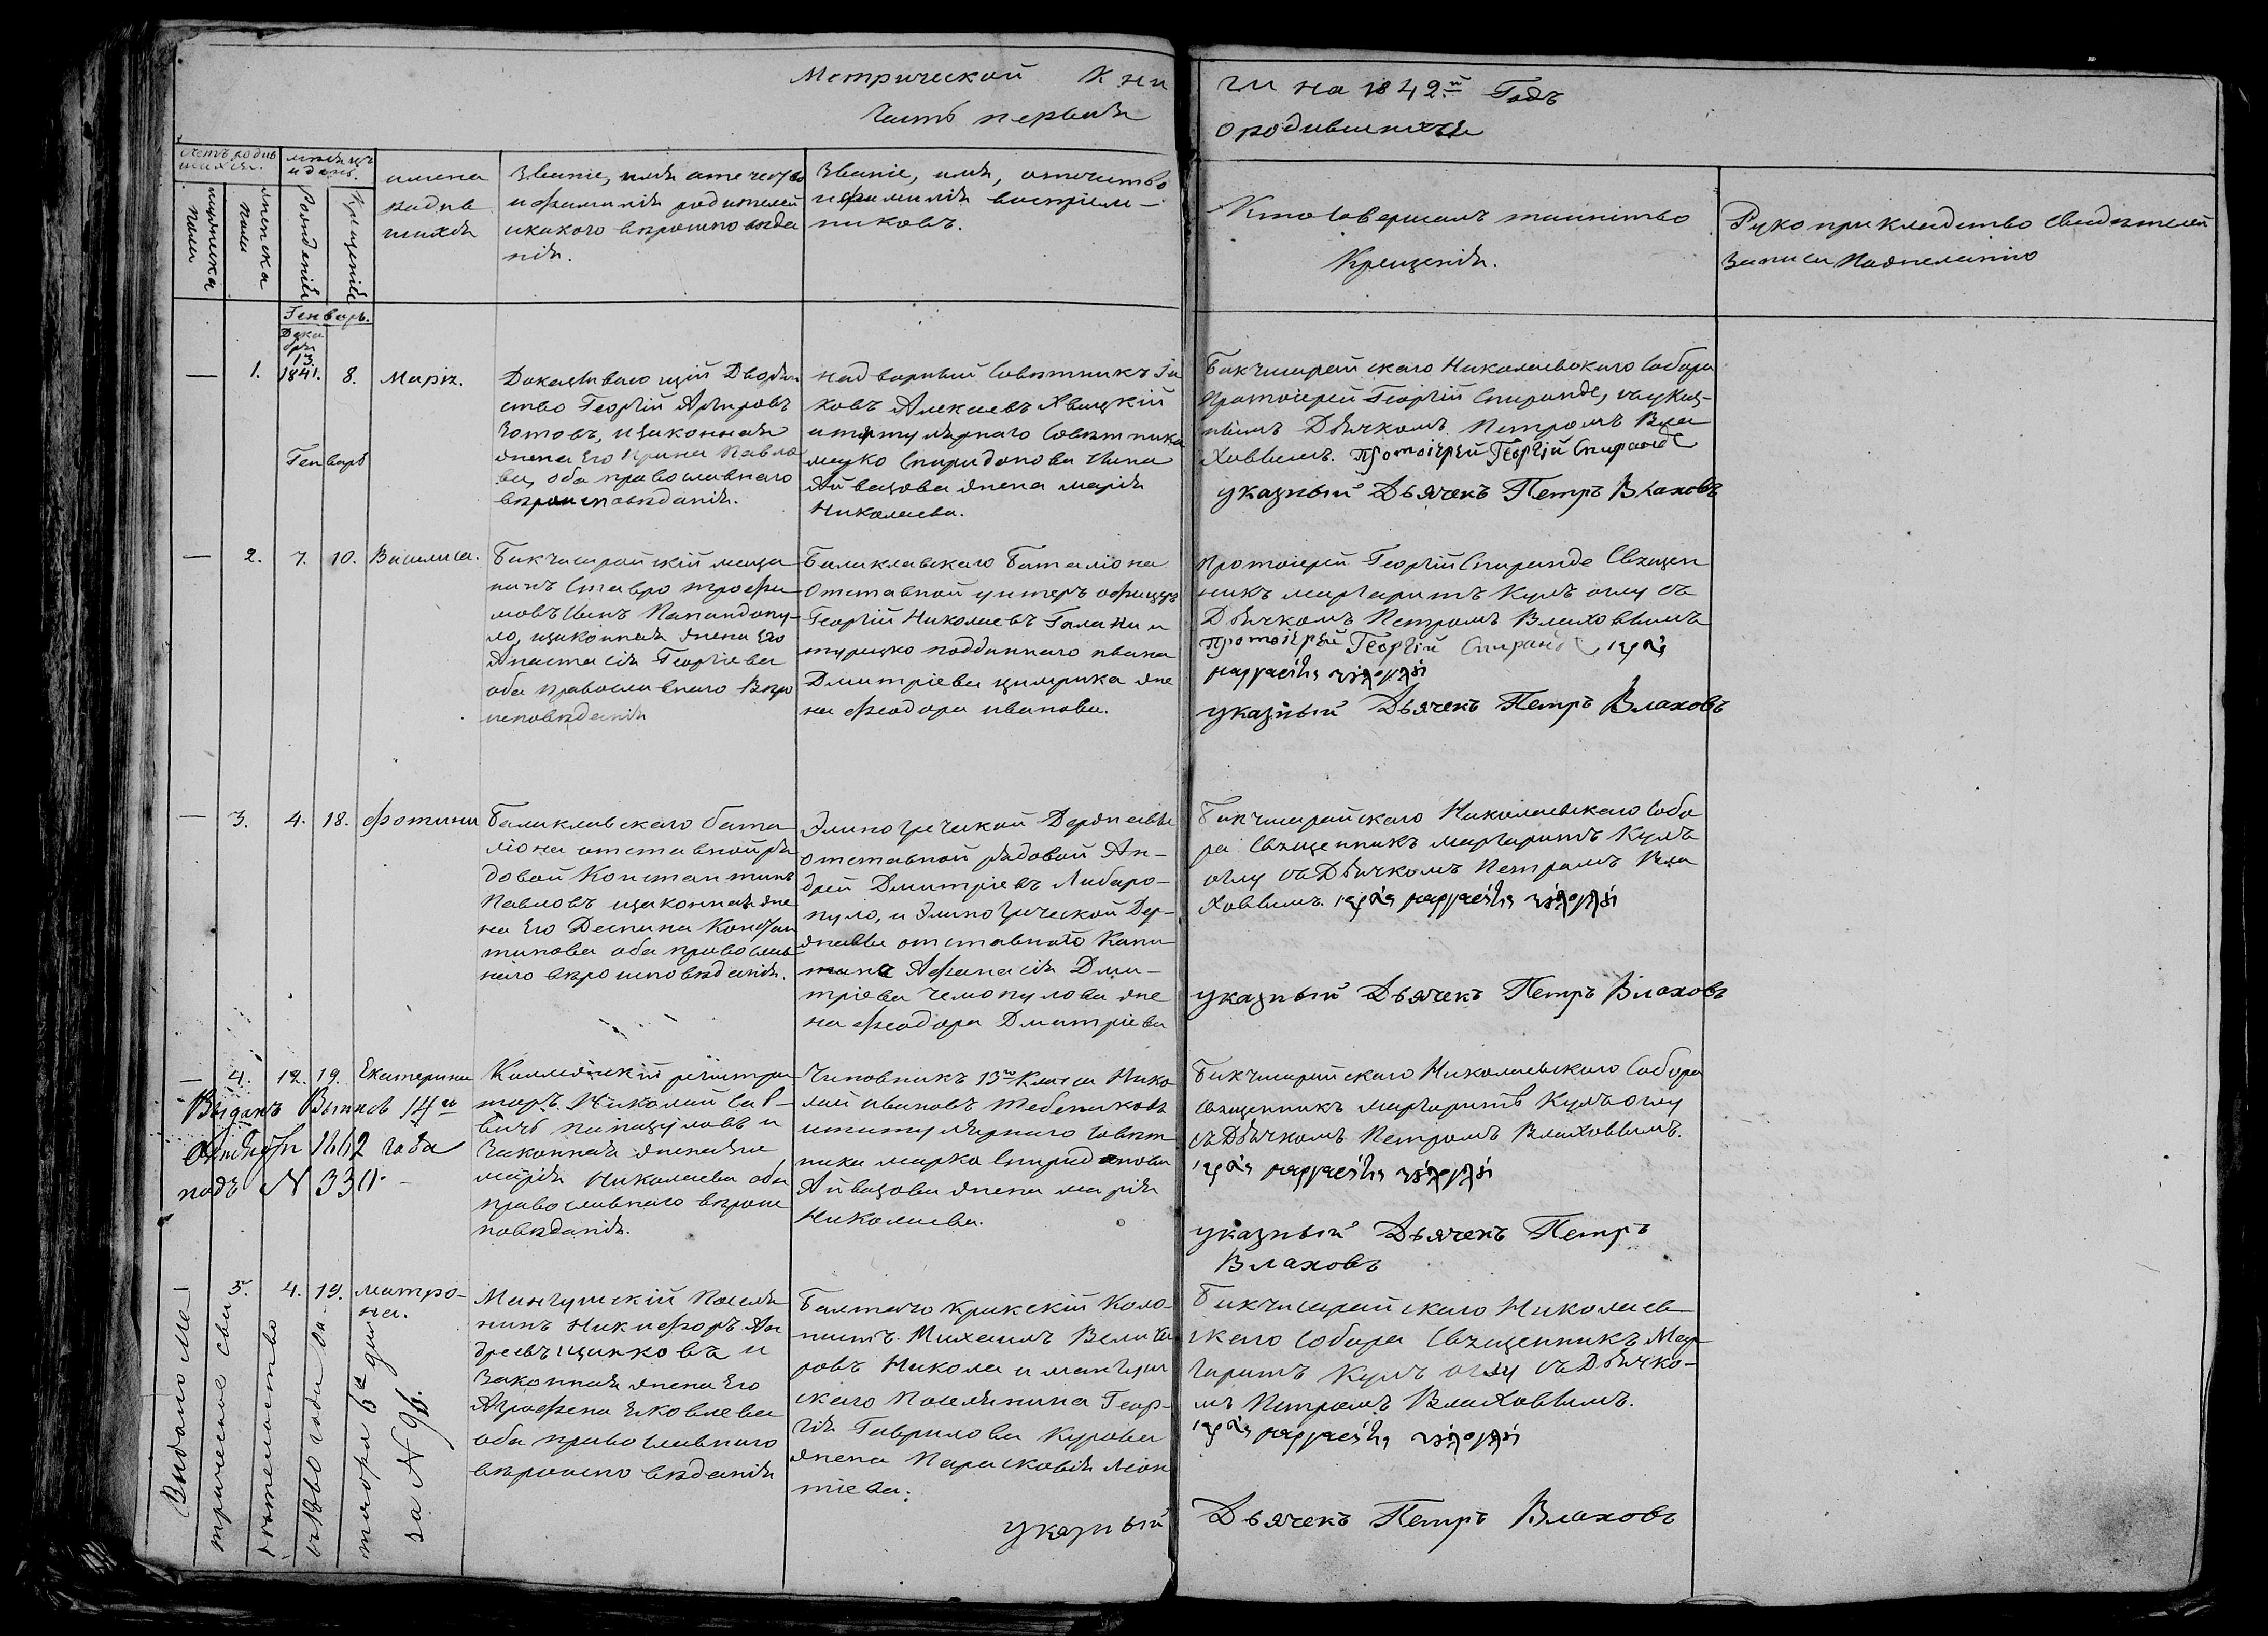 Метрической Кни
ги на 1842й Годъ
Часть первая
о родившихся
Счетъ родив
шихся.
мужеска
пола
женска
пола
мѣсяцъ
и день.
Рожденія
Крещенія
имена
родив
шихся
Званіе, имя отечество
и фамилія родителей
и какого вѣроисповѣда
нія.
Званіе, имя, отечество
и фамилія воспріем-
никовъ.
Кто совершалъ таинство
Крещенія.
Рукоприкладство свидѣтелей
записи по желанію
Генварь.
Дека
брь
13.
1841.
—
1.
8.
Марія.
Доказывающій Дворян
ство Георгій
Зотовъ, и законная
жена Его Ирина Павло
ва, оба православнаго
вѣроисповѣданія.
Надворный Совѣтникъ Яковъ
Явицкій
и титулярнаго Совѣтника
Марко Спиридонова сына
Айвазова жена Марія
Николаева.
Бакчисарайскаго Николаевскаго Собора
Протоіерей Георгій Спиранде, съ указ-
нымъ Дьячкомъ Петромъ Вла
ховымъ. Протоіерей Георгій Спиранде
указный Дьячекъ Петръ Влаховъ
Генварь
—
2.
7.
10.
Василиса.
Бакчисарайскій меща
нинъ Ставро Трофи
мовъ сынъ Папандопу-
ло, и законная жена Его
Анастасія Георгіева
оба православнаго Вѣро
исповѣданія
Балаклавскаго Баталіона
Отставной унтеръ офицеръ
Георгій Николаевъ Галани и
турецко подданнаго Ивана
Дмитріева жe
на Феодора Иванова.
Протоіерей Георгій Спиранде Священ
никъ Маргаритъ Кулъ оглу съ
Дьячкомъ Петромъ Влаховымъ
Протоіерей Георгій Спиранде,
указный Дьячекъ Петръ Влаховъ
—
3.
4.
18.
Фотинія
Балаклавскаго бата
ліона отставной ря
довой Константинъ
Павловъ и законная же
на Его Деспина Констан
тинова оба православ
наго вѣроисповѣданія.
Элино Греческой Деревни
отставной рядовой Ан-
дрей Дмитріевъ Либаро-
пуло, и Элино Греческой Дер-
евни отставнаго Капи
тана Афанасія Дми-
тріева Чемопулова же
на Феодора Дмитріева
Бакчисарайскаго Николаевскаго Собо
ра Священникъ Маргаритъ Кулъ
оглу съ Дьячкомъ Петромъ Вла
ховымъ.
указный Дьячекъ Петръ Влаховъ
—
4.
12.
19.
Екатерина
Выданъ 14го
1862 года
подъ N
Коллежскій регистра
торъ Николай Сав-
вичъ Папацуловъ и
Законная жена Его
Марія Николаева оба
православнаго вѣроис
повѣданія.
Чиновникъ 13го Класса Нико
лай Ивановъ Тебениковъ
и титулярнаго Совѣт
ника Марко Спиридонова
Айвазова жена Марія
Николаева.
Бакчисарайскаго Николаевскаго Собора
священникъ Маргаритъ Кулъ оглу
съ Дьячкомъ Петромъ Влаховымъ.
указный Дьячекъ Петръ
Влаховъ
—
5.
4.
19.
Матро-
на.
Выдано Ме
трическое сви
дѣтельство
1860 года
6го дня
за N 96.
Мангушскій Поселя
нинъ Никифоръ Ан
дреевъ и
Законная жена Его
Агрофена Яковлева
оба православнаго
вѣроисповѣданія
Коло-
нистъ Михаилъ
Никола и Мангуш
скаго Поселянина Геор-
гія Гаврилова Курова
жена Парасковія Леон
тіева.
Бакчисарайскаго Николаев-
скаго Собора Священникъ Мар-
гаритъ Кулъ оглу съ Дьячко-
мъ Петромъ Влаховымъ.
указный Дьячекъ Петръ Влаховъ